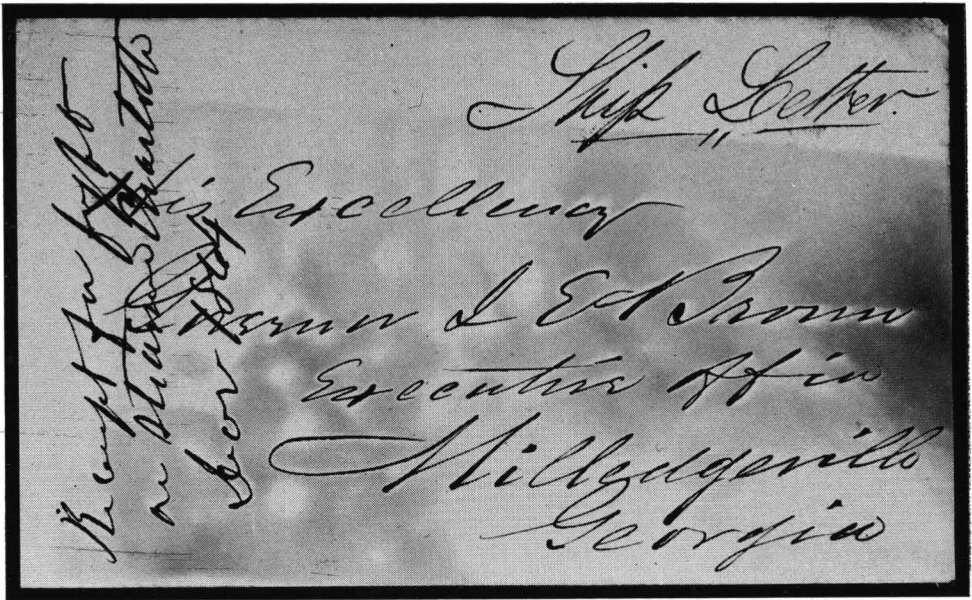 Ship Letter.
His Excellency
Governor J E Brown
Executive Office
Milledgeville
Georgia
Receipt for
State
1864